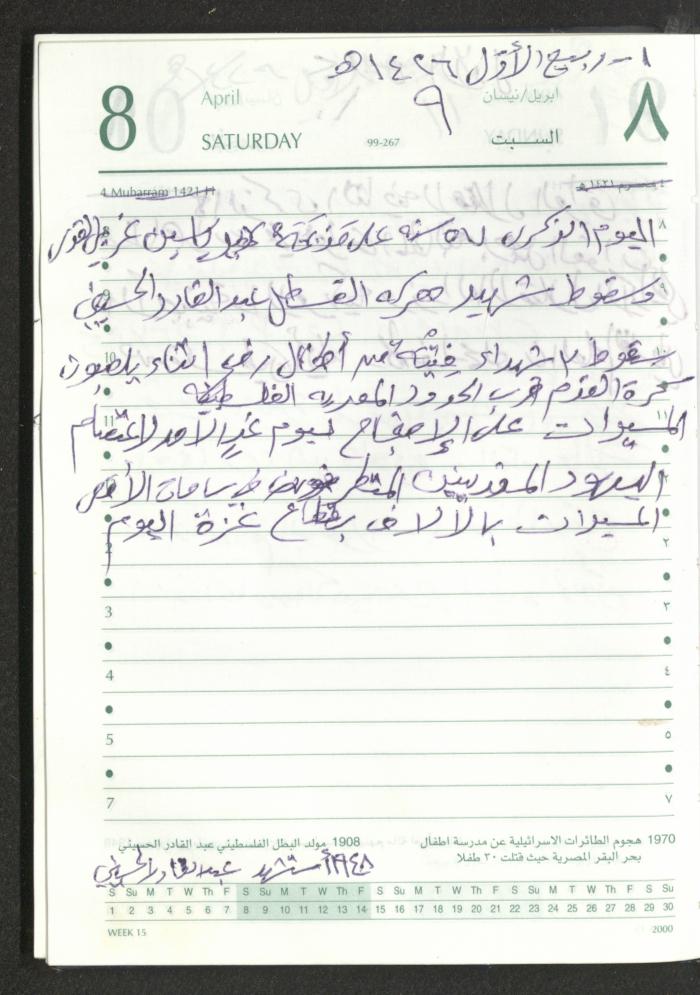 ١- ربيع الأول ١٤٢٦ هـ
8 April ٩ ابريل/نيسان ٨
SATURDAY 99-267 السبت
4 Muharram 1421 H ٤ محرم ١٤٢١ هـ
اليوم الذكرى ٥٧ سنة على مذبحة دير ياسين غربي القدس
وسقوط شهيد معركة القسطل عبد القادر الحسيني
سقوط ٣ شهداء فتية من أطفال رفح اثناء يلعبون
كرة القدم قرب الحدود المصرية الفلسطينية
المسيرات على الإحتجاج ليوم غدٍ الأحد لاعتصام
اليهود المتطرفين ساحات الأقصى
المسيرات بالآلاف بقطاع غزة اليوم
8 ٨
9 ٩
10 ١٠
11 ١١
2 ٢
3 ٣
4 ٤
5 ٥
7 ٧
1970 هجوم الطائرات الاسرائيلية عن مدرسة اطفال 1908 مولد البطل الفلسطيني عبد القادر الحسيني
بحر البقر المصرية حيث قتلت ٣٠ طفلا
١٩٤٨ أستشهد عبد القادر الحسيني
S Su M T W Th F S Su M T W Th F S Su M T W Th F S Su M T W Th F S Su
1 2 3 4 5 6 7 8 9 10 11 12 13 14 15 16 17 18 19 20 21 22 23 24 25 26 27 28 29 30
WEEK 15 2000